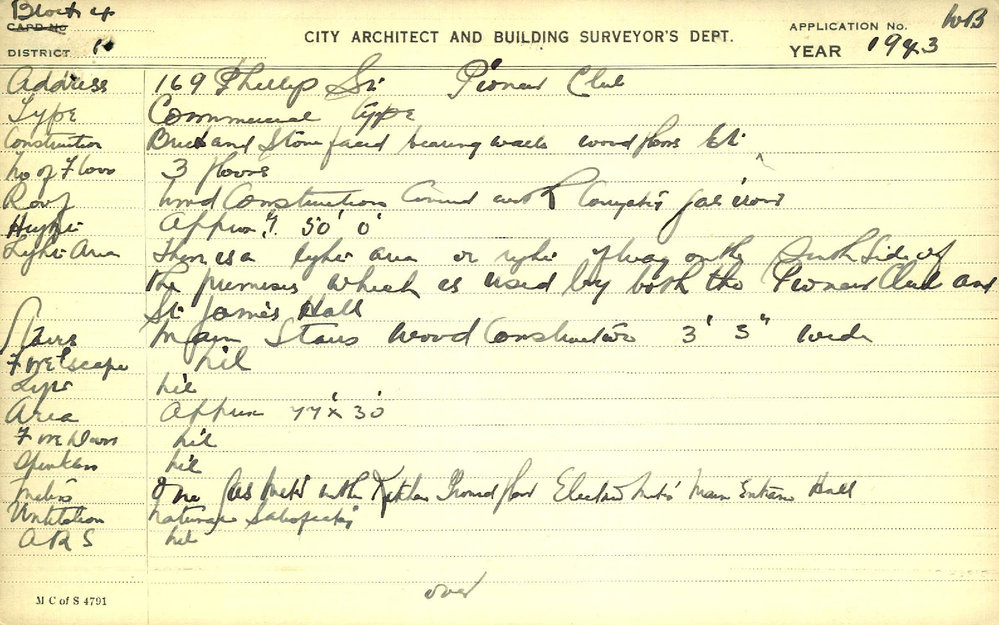 Block 4
CARD No
DISTRICT 10
CITY ARCHITECT AND BUILDING SURVEYOR'S DEPT.
APPLICATION No. WB
YEAR 1943
Address 169 Phillip St. Pioneer Club
Type Commercial Type
Construction Brick and Stone faced bearing walls wood floors Etc
No of Floors 3 floors
Roof Wood Construction Covered with Corrugated galv iron
Height Approx 50' 0"
Light Area There is a light area or right of way on the South Side of
the premises which is used by both the Pioneer Club and
St James Hall
Stairs Main Stairs Wood Construction 3' 3" wide
Fire Escape nil
Lifts nil
Area Approx 77' x 30'
Fire Doors nil
Sprinklers nil
Meters One Gas Meter in the Kitchen Ground floor Electric Meters Main Entrance Hall
Ventilation Natural Satisfactory
A R S nil
over
M C of S 4791